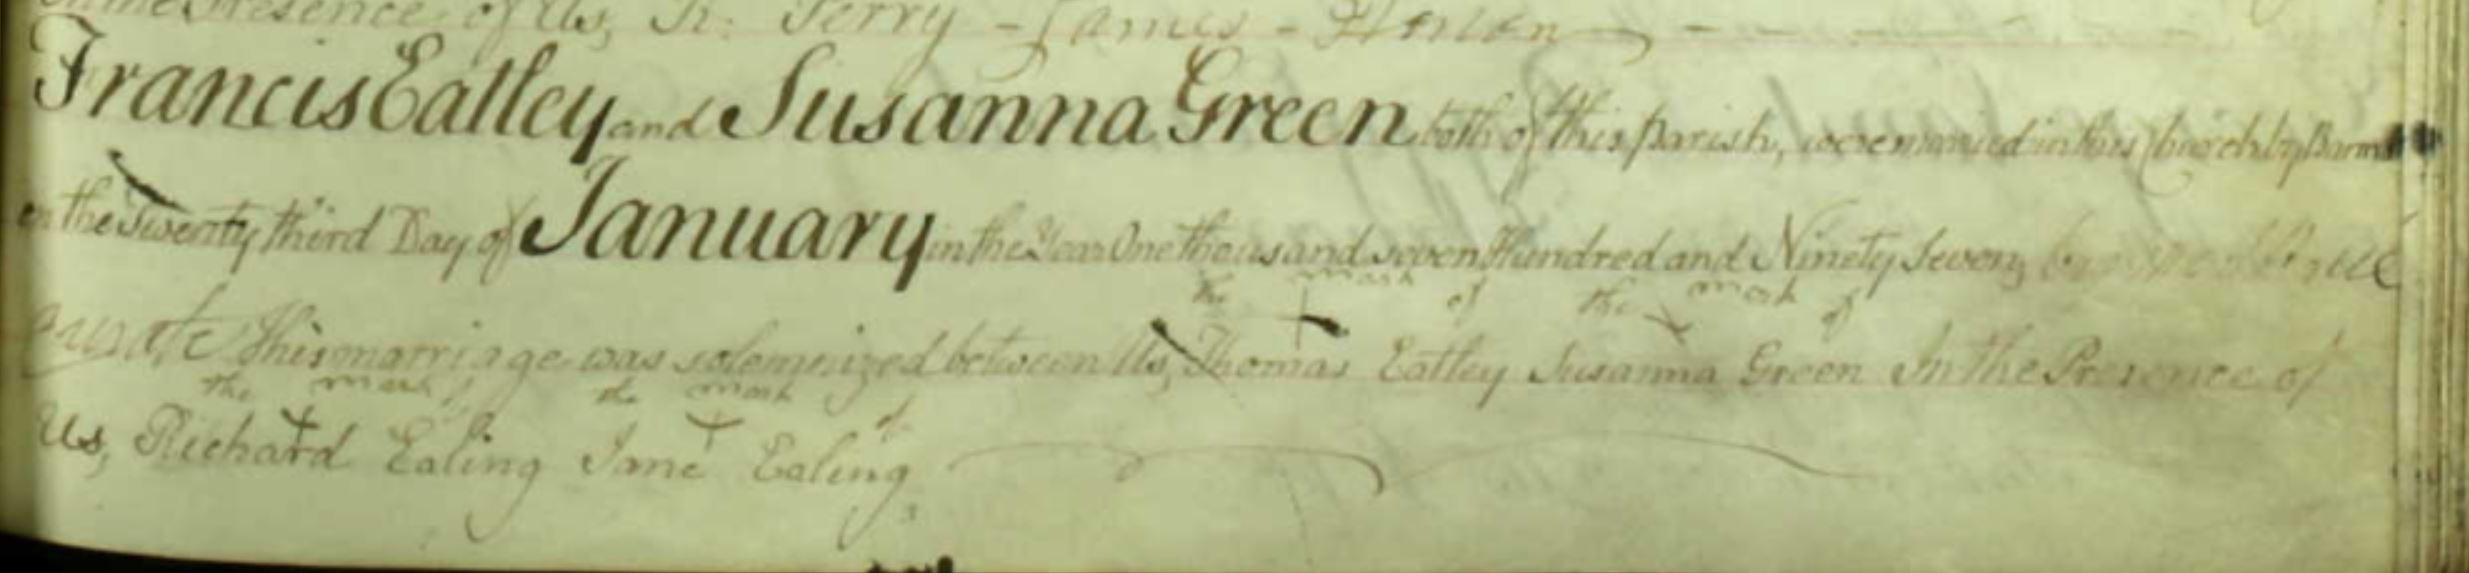 in the Presence of Us, R. Terry - James
Francis Eatley and Susanna Green both of this Parish, were married in this Church by Banns
on the Twenty third Day of January in the Year One thousand seven Hundred and Ninety Seven by me
the mark of the mark of
Curate This marriage was solemnized between Us, Thomas Eatley Susanna Green In the Presence of
the mark of the mark of
Us, Richard Ealing Jane Ealing